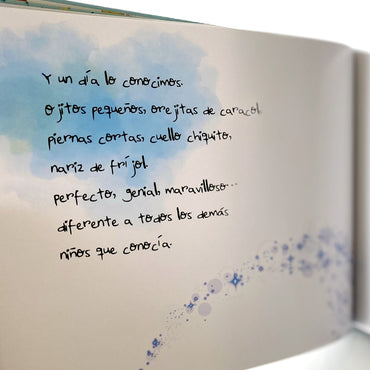 Y un día lo conocimos.
Ojitos pequeños, orejitas de caracol,
piernas cortas, cuello chiquito,
nariz de fríjol.
perfecto, genial, maravilloso...
diferente a todos los demás
niños que conocía.